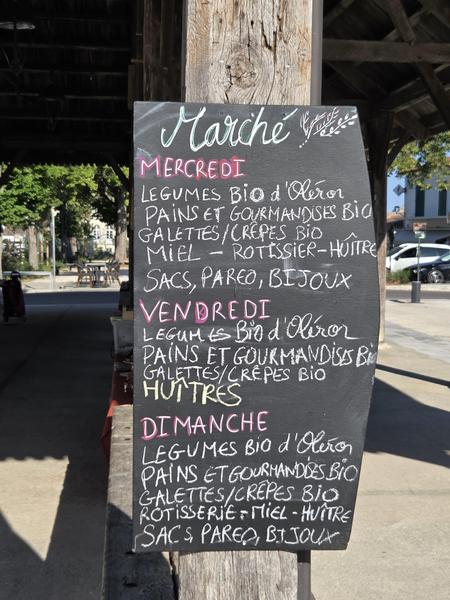 Marché
MERCREDI
LEGUMES BiO d'Oléron
PAINS ET GOURMANDISES BiO
GALETTES/CRÊPES BIO
MIEL - ROTISSIER-HUÎTRE
SACS, PAREO, BIJOUX
VENDREDI
LEGUMES BIO d'Oléron
PAINS ET GOURMANDISES BIO
GALETTES/CRÊPES BIO
HUÎTRES
DIMANCHE
LEGUMES BIO d'Oléron
PAINS ET GOURMANDISES BIO
GALETTES/CRÊPES BIO
ROTISSERIE-MIEL-HUÎTRE
SACS, PAREO, BIJOUX